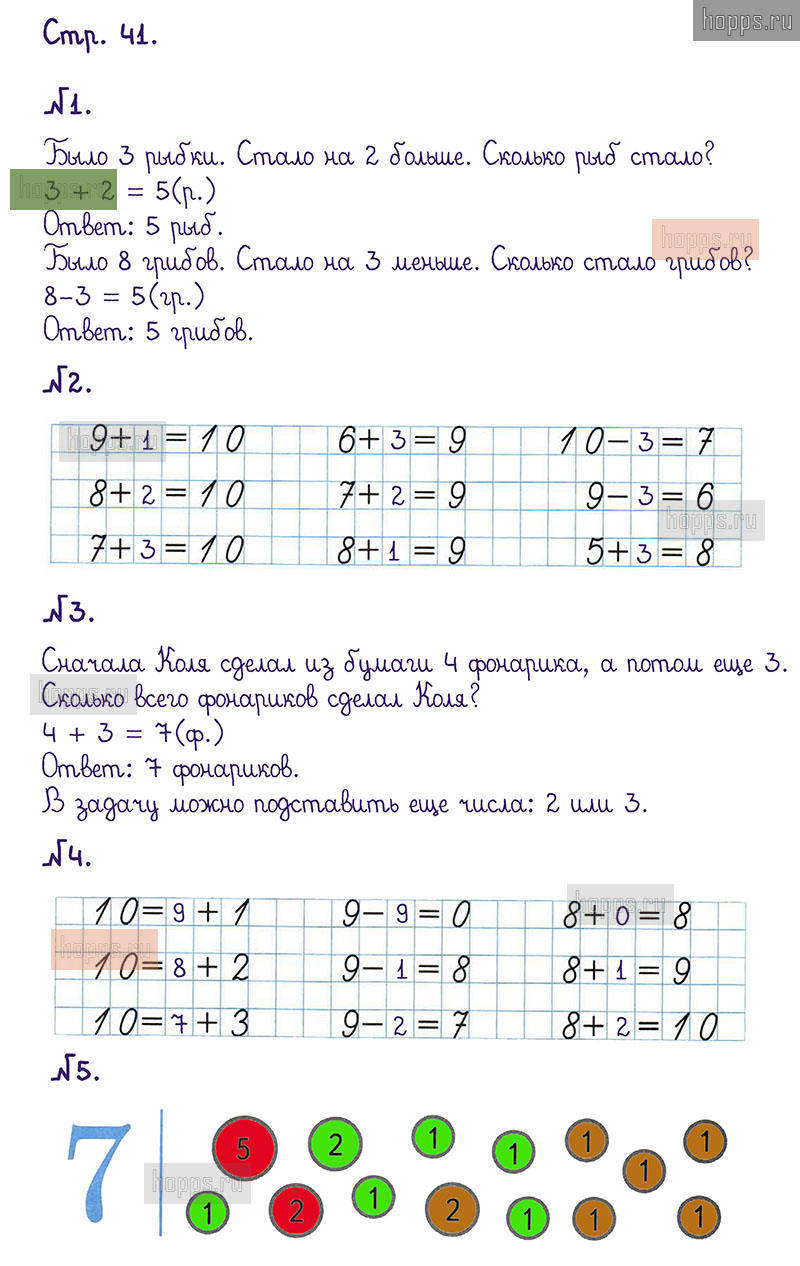 hopps.ru
Стр. 41.
№1.
Было 3 рыбки. Стало на 2 больше. Сколько рыб стало?
3 + 2 = 5(р.)
Ответ: 5 рыб.
Было 8 грибов. Стало на 3 меньше. Сколько стало грибов?
8-3 = 5(гр.)
Ответ: 5 грибов.
№2.
9+1=10 6+3=9 10-3=7
8+2=10 7+2=9 9-3=6
7+3=10 8+1=9 5+3=8
№3.
Сначала Коля сделал из бумаги 4 фонарика, а потом еще 3.
Сколько всего фонариков сделал Коля?
4 + 3 = 7(ф.)
Ответ: 7 фонариков.
В задачу можно подставить еще числа: 2 или 3.
№4.
10=9+1 9-9=0 8+0=8
10=8+2 9-1=8 8+1=9
10=7+3 9-2=7 8+2=10
№5.
7
5 2 1 1 1 1 1
1 2 1 2 1 1 1